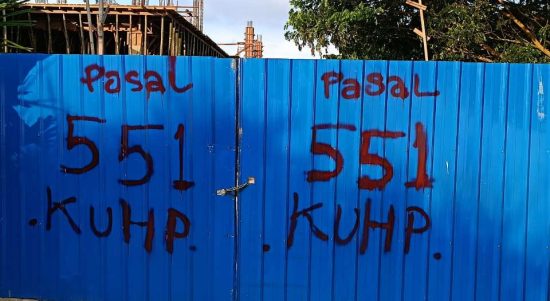 Pasal
551
.KUHP.
Pasal
551
.KUHP.